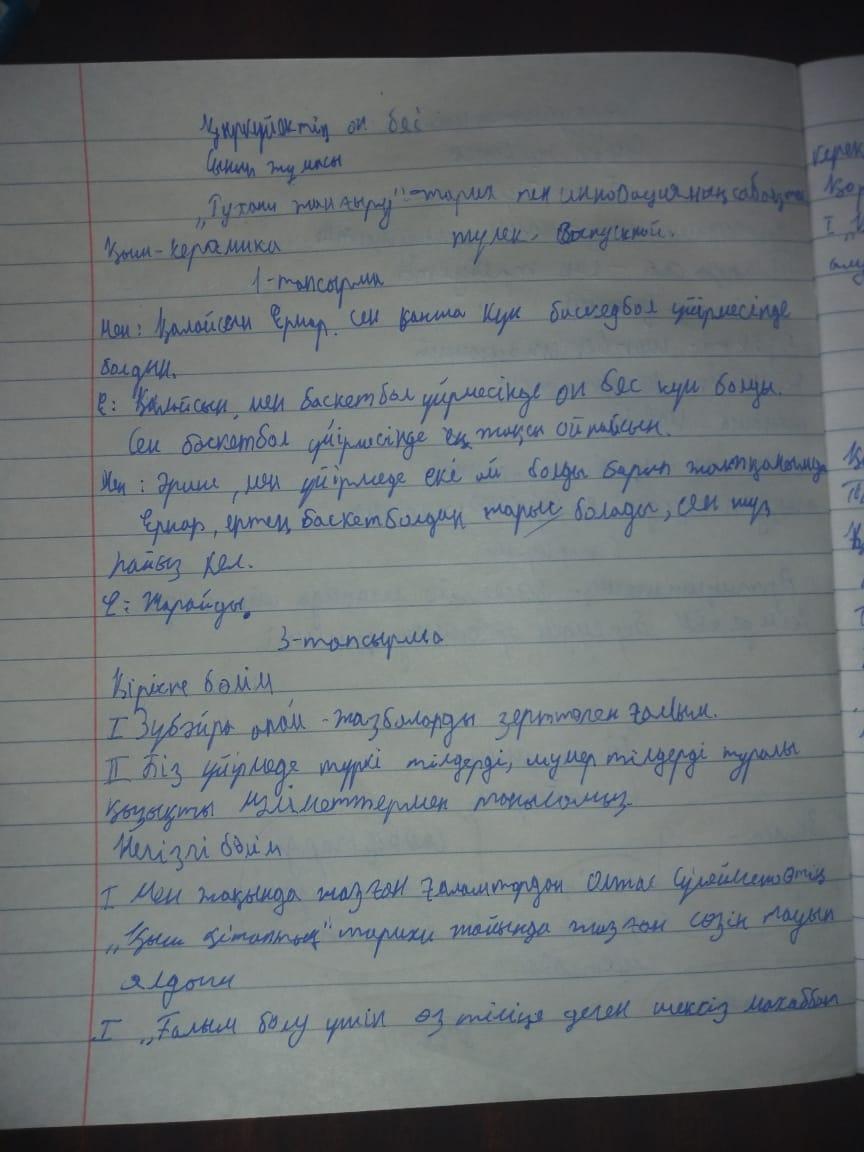 Қыркүйектің он бесі
Сынып жұмысы
„Тұханы жаңғыру"-тарих пен инновацияның сабақта
Қыш-керамика түлек- Выпускной.
1-тапсырма
Мен: Қалайсың Ернар. сен қанша күн баскедбол үйірмесінде
болдың.
Е: Қалайсың, мен баскетбол үйрмесінде он бес күн болды.
Сен баскетбол үйірмесінде ең жақсы ойнайсын.
Мен: Әрине, мен үйірмеде екі ай болды барып жатқанымда
Ернар, ертең баскетболдан жарыс болады, сен жүз
пайыз кел.
Е: Жарайды.
3-тапсырма
Кіріспе бөлім
I Зубайра апай -жазбаларды зерттеген ғалым.
II Біз үйірмеде түркі тілдерді, шумер тілдерді туралы
қызықты мәліметтермен танысамыз.
Негізгі бөлім
I Мен жақында жазған ғаламтордан Олжас Сүлейменовтің
„Қыш кітаптың" тарихи жайында жазған сөзін тауып
алдым
I „Ғалым болу үшін өз тіліңе деген шексіз махаббат
керек
I